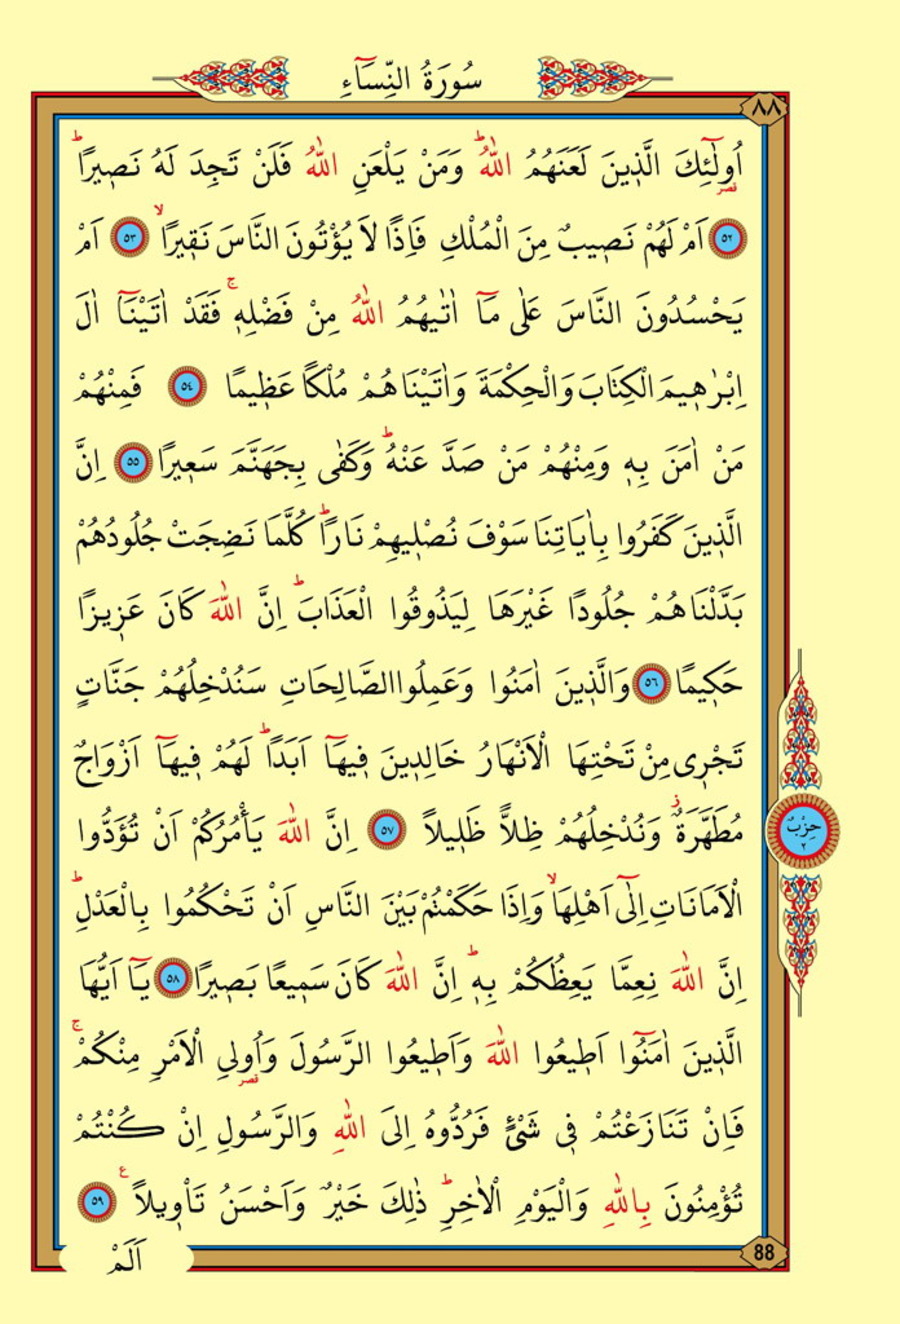 سُورَةُ النِّسَٓاءِ
٨٨
اُو۬لٰٓئِكَ الَّذ۪ينَ لَعَنَهُمُ اللّٰهُۜ وَمَنْ يَلْعَنِ اللّٰهُ فَلَنْ تَجِدَ لَهُ نَص۪يرًاۜ
قصر
٥٢ اَمْ لَهُمْ نَص۪يبٌ مِنَ الْمُلْكِ فَاِذًا لَا يُؤْتُونَ النَّاسَ نَق۪يرًاۙ ٥٣ اَمْ
يَحْسُدُونَ النَّاسَ عَلٰى مَٓا اٰتٰيهُمُ اللّٰهُ مِنْ فَضْلِه۪ۚ فَقَدْ اٰتَيْنَٓا اٰلَ
اِبْرٰه۪يمَ الْكِتَابَ وَالْحِكْمَةَ وَاٰتَيْنَاهُمْ مُلْكًا عَظ۪يمًا ٥٤ فَمِنْهُمْ
مَنْ اٰمَنَ بِه۪ وَمِنْهُمْ مَنْ صَدَّ عَنْهُۜ وَكَفٰى بِجَهَنَّمَ سَع۪يرًا ٥٥ اِنَّ
الَّذ۪ينَ كَفَرُوا بِاٰيَاتِنَا سَوْفَ نُصْل۪يهِمْ نَارًاۜ كُلَّمَا نَضِجَتْ جُلُودُهُمْ
بَدَّلْنَاهُمْ جُلُودًا غَيْرَهَا لِيَذُوقُوا الْعَذَابَۜ اِنَّ اللّٰهَ كَانَ عَز۪يزًا
حَك۪يمًا ٥٦ وَالَّذ۪ينَ اٰمَنُوا وَعَمِلُوا الصَّالِحَاتِ سَنُدْخِلُهُمْ جَنَّاتٍ
تَجْر۪ي مِنْ تَحْتِهَا الْاَنْهَارُ خَالِد۪ينَ ف۪يهَٓا اَبَدًاۜ لَهُمْ ف۪يهَٓا اَزْوَاجٌ
مُطَهَّرَةٌۘ وَنُدْخِلُهُمْ ظِلًّا ظَل۪يلًا ٥٧ اِنَّ اللّٰهَ يَأْمُرُكُمْ اَنْ تُؤَدُّوا
حِزْبٌ
٢
الْاَمَانَاتِ اِلٰٓى اَهْلِهَاۙ وَاِذَا حَكَمْتُمْ بَيْنَ النَّاسِ اَنْ تَحْكُمُوا بِالْعَدْلِۜ
اِنَّ اللّٰهَ نِعِمَّا يَعِظُكُمْ بِه۪ۜ اِنَّ اللّٰهَ كَانَ سَم۪يعًا بَص۪يرًا ٥٨ يَٓا اَيُّهَا
الَّذ۪ينَ اٰمَنُٓوا اَط۪يعُوا اللّٰهَ وَاَط۪يعُوا الرَّسُولَ وَاُو۬لِي الْاَمْرِ مِنْكُمْۚ
قصر
فَاِنْ تَنَازَعْتُمْ ف۪ي شَيْءٍ فَرُدُّوهُ اِلَى اللّٰهِ وَالرَّسُولِ اِنْ كُنْتُمْ
تُؤْمِنُونَ بِاللّٰهِ وَالْيَوْمِ الْاٰخِرِۜ ذٰلِكَ خَيْرٌ وَاَحْسَنُ تَأْو۪يلًا ع ٥٩
اَلَمْ
88